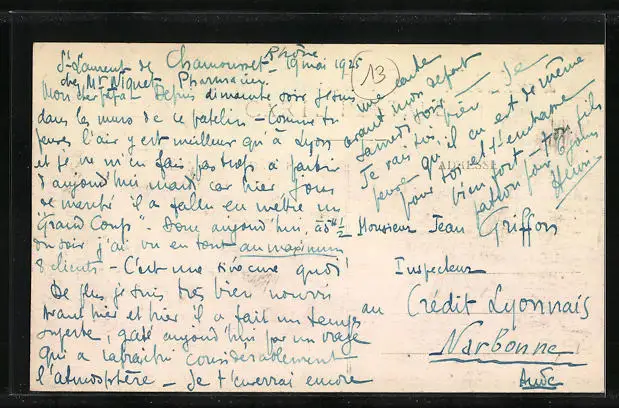 St Laurent de Chamousset Rhône
19 mai 1925
chez Mr Niquet Pharmacien
13
Mon cher Depuis dimanche soir je suis
dans les murs de ce patelin - Comme tu
penses l'air y est meilleur qu'à Lyon
et je ne m'en fais pas trop à partir
d'aujourd'hui mardi car hier jour
de marché il a fallu en mettre un
"Grand Coup" - Donc aujourd'hui, à 6h 1/2
du soir j'ai vu en tout au maximum
8 clients - C'est une sinécure quoi!
De plus je suis très bien nourri
avant hier et hier il a fait un temps
superbe, gâté aujourd'hui par un orage
qui a rafraîchi considérablement
l'atmosphère - Je t'enverrai encore
une carte
avant mon départ
samedi soir - Je
Je vais très bien
pense qu'il en est de même
pour toi et t'embrasse
bien fort - ton fils
patron pour 6 jours
Henri
ADRESSE
Monsieur Jean Griffon
Inspecteur
au Crédit Lyonnais
Narbonne
Aude